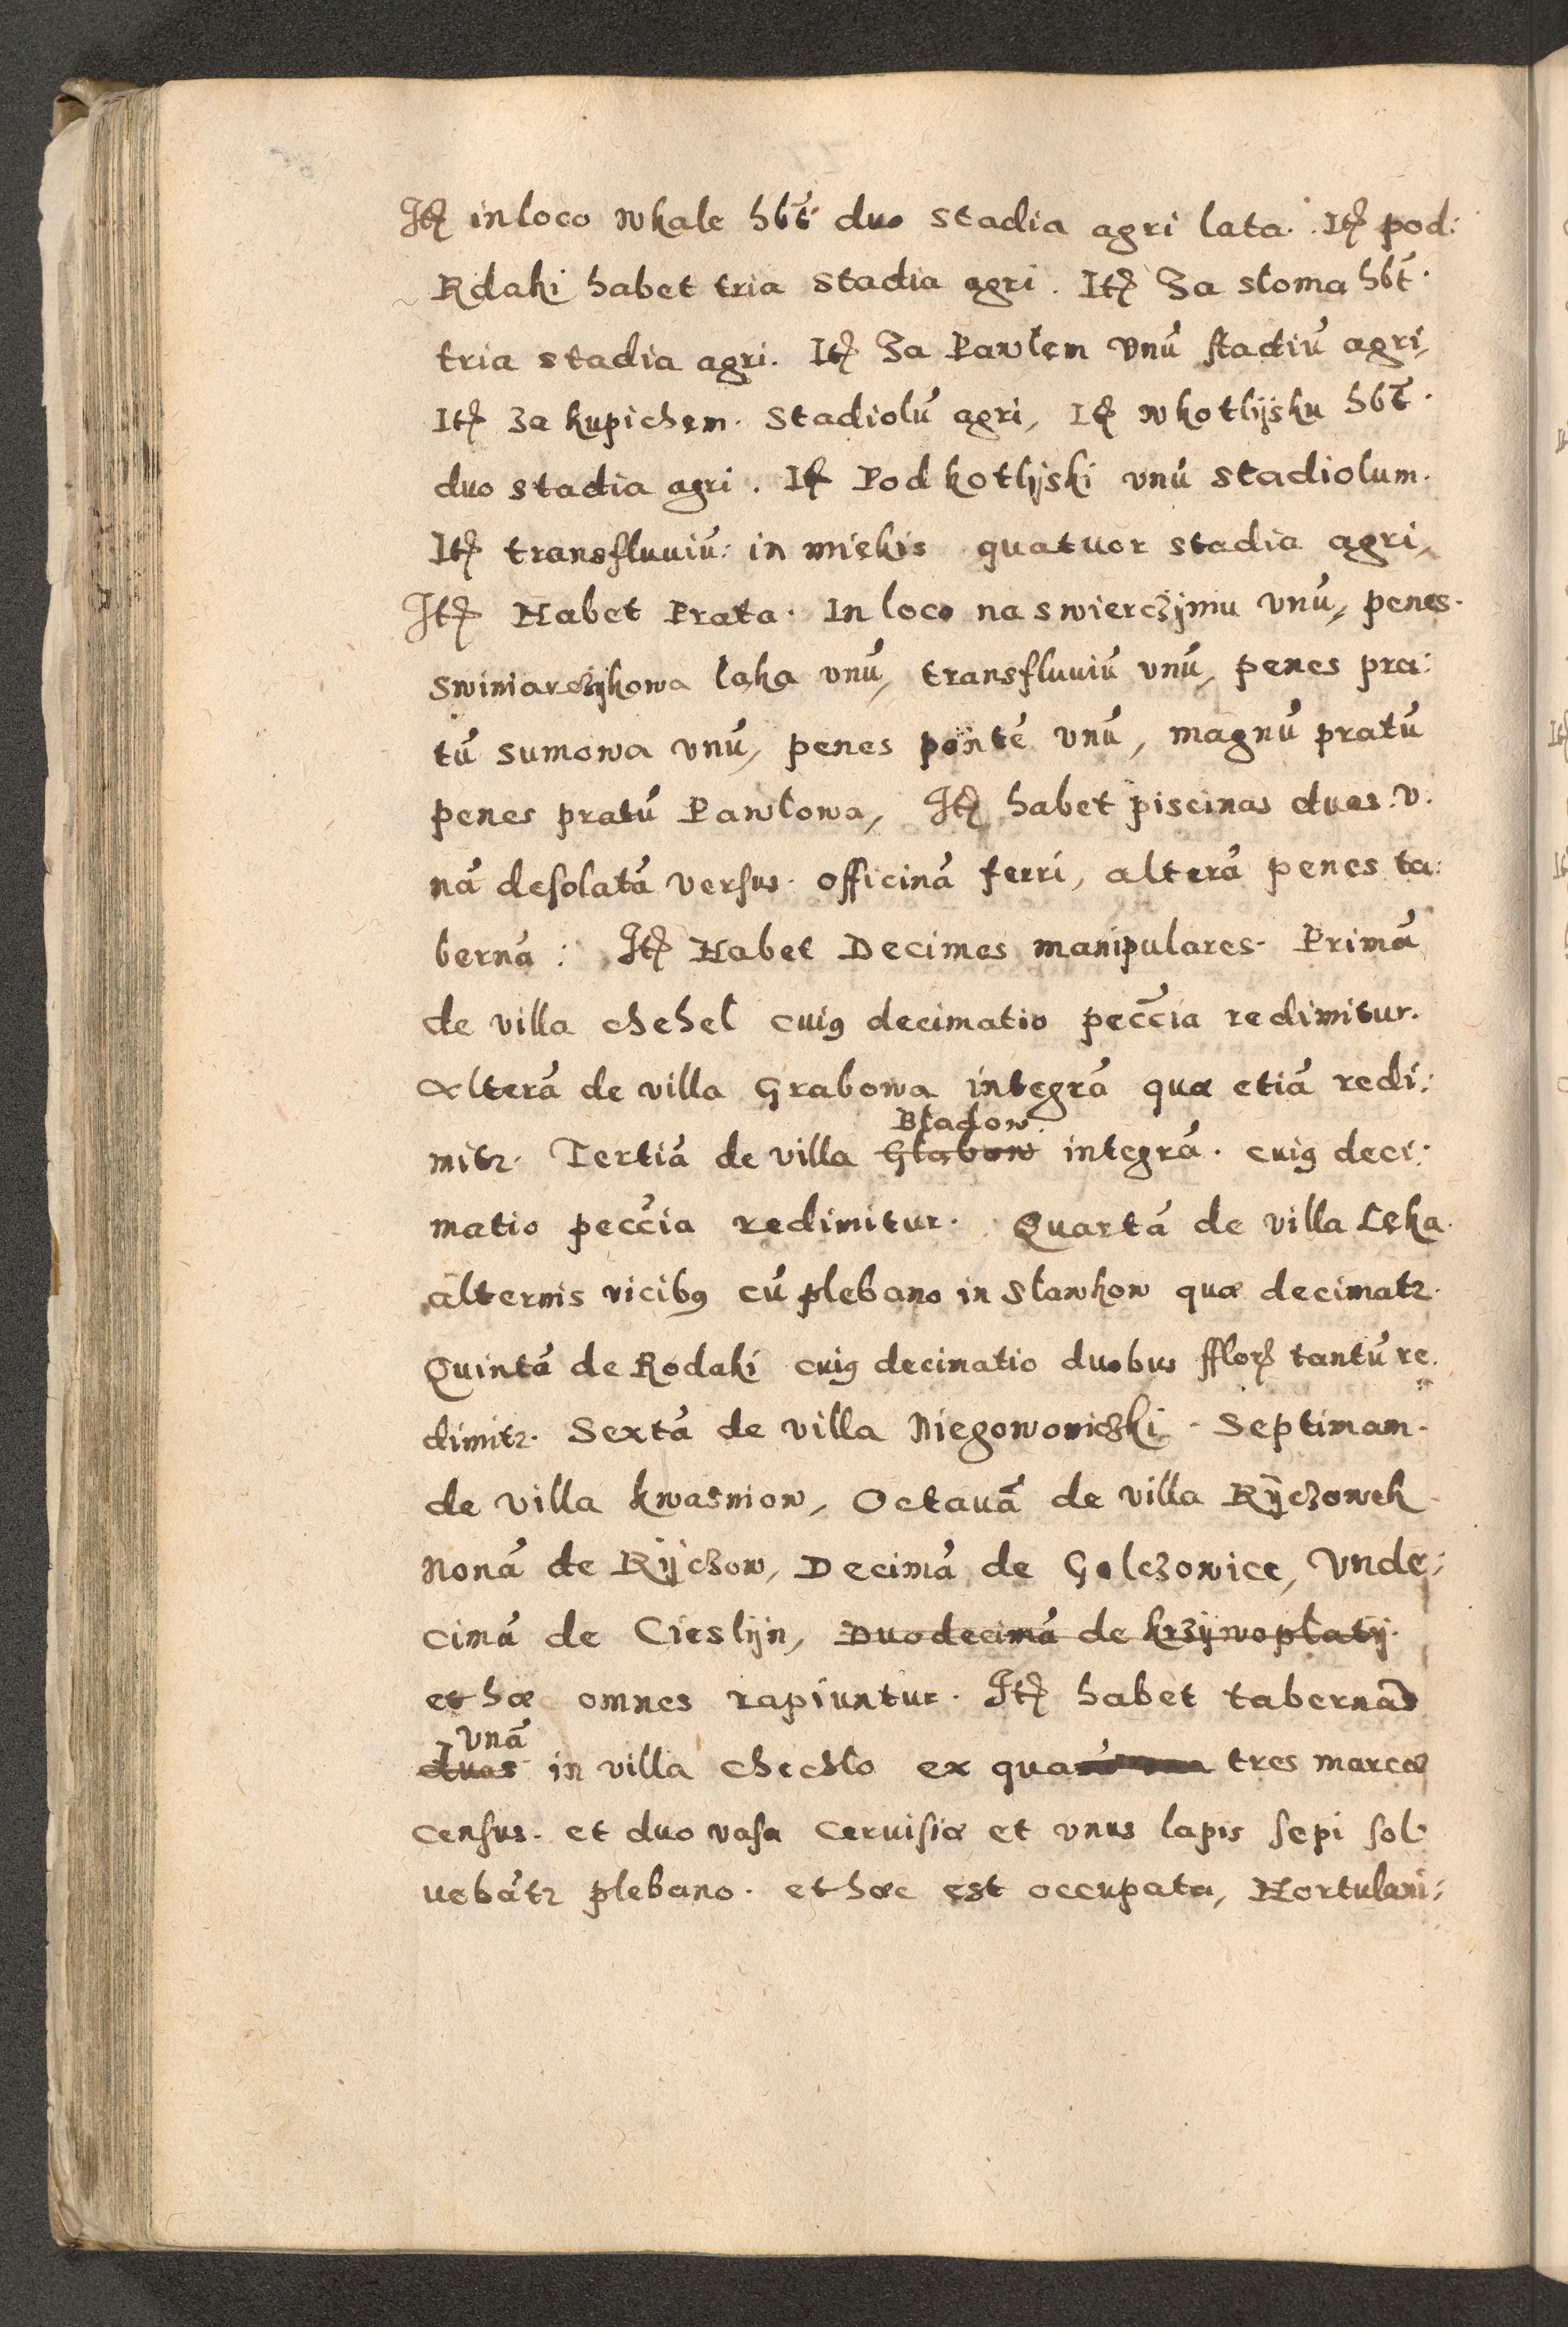 Itē in loco w kale hbt̄ duo stadia agri lata. Itē pod:
Rdaki habet tria stadia agri. Itē Za słoma hbt̄.
tria stadia agri. Itē Za Pawłem vnū stadiū agri,
Itē za kupichem. Stadiolū agri, Itē w kotlÿsku hbt̄.
duo stadia agri. Itē Pod kotlÿski vnū stadiolum.
Itē transfluuiū: in miekis quatuor stadia agri,
Itē Habet Prata. In loco na swierczÿniu vnū, penes.
swiniarczÿkowa łąka vnū, transfluuiū vnū, penes pra:
tū sumowa vnū, penes pontē vnū, magnū pratū
penes pratū Pawłowa, Itē habet piscinas duas. v.
nā desolatā versus. officinā ferri, alterā penes ta:
bernā: Itē Habet Decimas manipulares. Primā
de villa chehel cuiꝰ decimatio pecc̄ia redimitur.
Alterā de villa Grabowa integrā quæ etiā redi:
Bładow.
mitr. Tertiā de villa Głabow integrā. cuiꝰ deci:
matio pecc̄ia redimitur. Quartā de villa Łęka.
alternis vicibꝰ cū plebano in Sławkow quæ decimatr.
Quintā de Rodaki cuiꝰ decimatio duobus fflorē tantū re.
dimitr. Sextā de villa Niegowoniczki. Septimam.
de villa kwasniow, Octauā de villa Rÿczowek
Nonā de Rÿczow, Decimā de Golczowice, Vnde:
cimā de Cieslÿn, Duodecimā de krzÿwopłatÿ.
et hæ omnes rapiuntur. Itē habet tabernas
vnā
duas in villa chechło ex qua tres marcæ
census. et duo vasa ceruisiæ et vnus lapis sepi sol
uebātr plebano. et hæc est occupata, Hortulani: